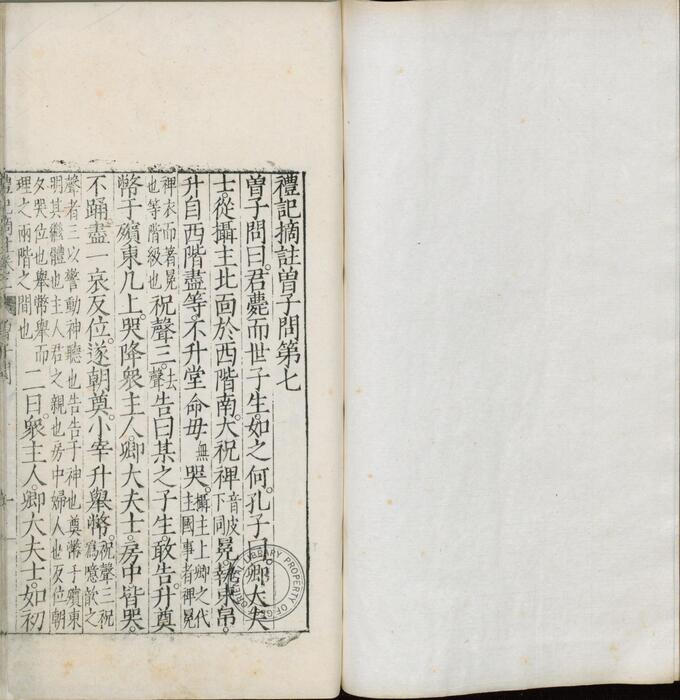 禮記摘註曽子問第七
曽子問曰。君薨而世子生。如之何。孔子曰。卿大夫
士。從攝主北面於西階南。大祝裨音皮下同冕。執束帛。
升自西階盡等。不升堂命毋無哭。攝主上卿之代主國事者裨冕
裨衣而著冕也等階級也祝聲三。去聲告曰某之子生。敢告。升奠
幣于殯東几上。哭降。衆主人。卿大夫士。房中皆哭。
不踊。盡一哀反位。遂朝奠。小宰升舉幣。祝聲三祝為噫歆之
聲者三以警動神聽也告告于神也奠幣于殯東
明其繼體也主人君之親也房中婦人也反位朝
夕哭位也舉幣舉而理之兩階之間也二日。衆主人。卿大夫士。如初
禮記摘註卷之 曽子問
LIBRARY PROPERTY OF